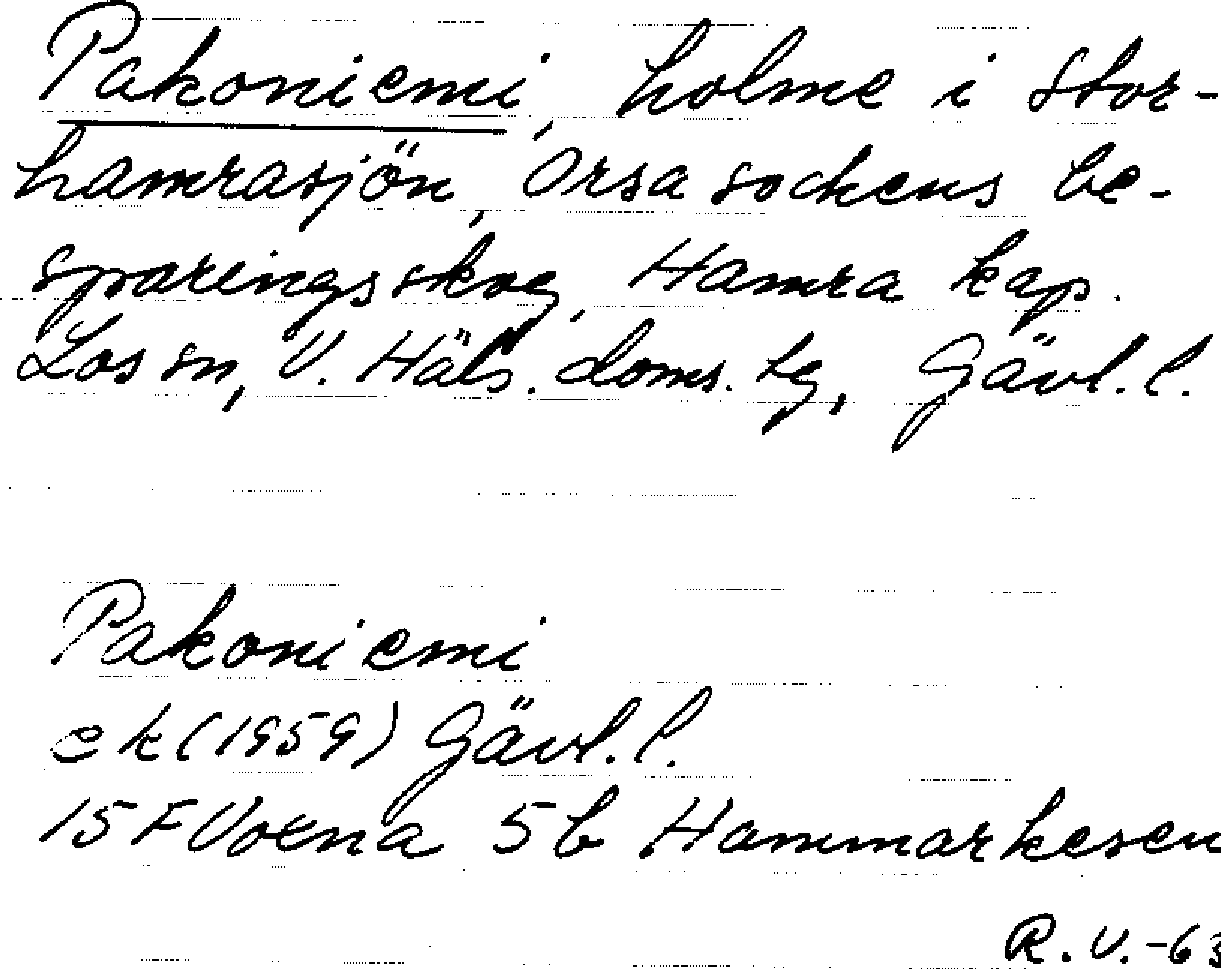 Pakoniemi, holme i Stor-
hamrasjön, Orsa sockens be-
sparingsskog, Hamra kap.
Los sn, V. Häls. doms. tg, Gävl. l.
Pakoniemi
ek (1959) Gävl. l.
15 F Voxna 5b Hammarkesen
R. V. -63